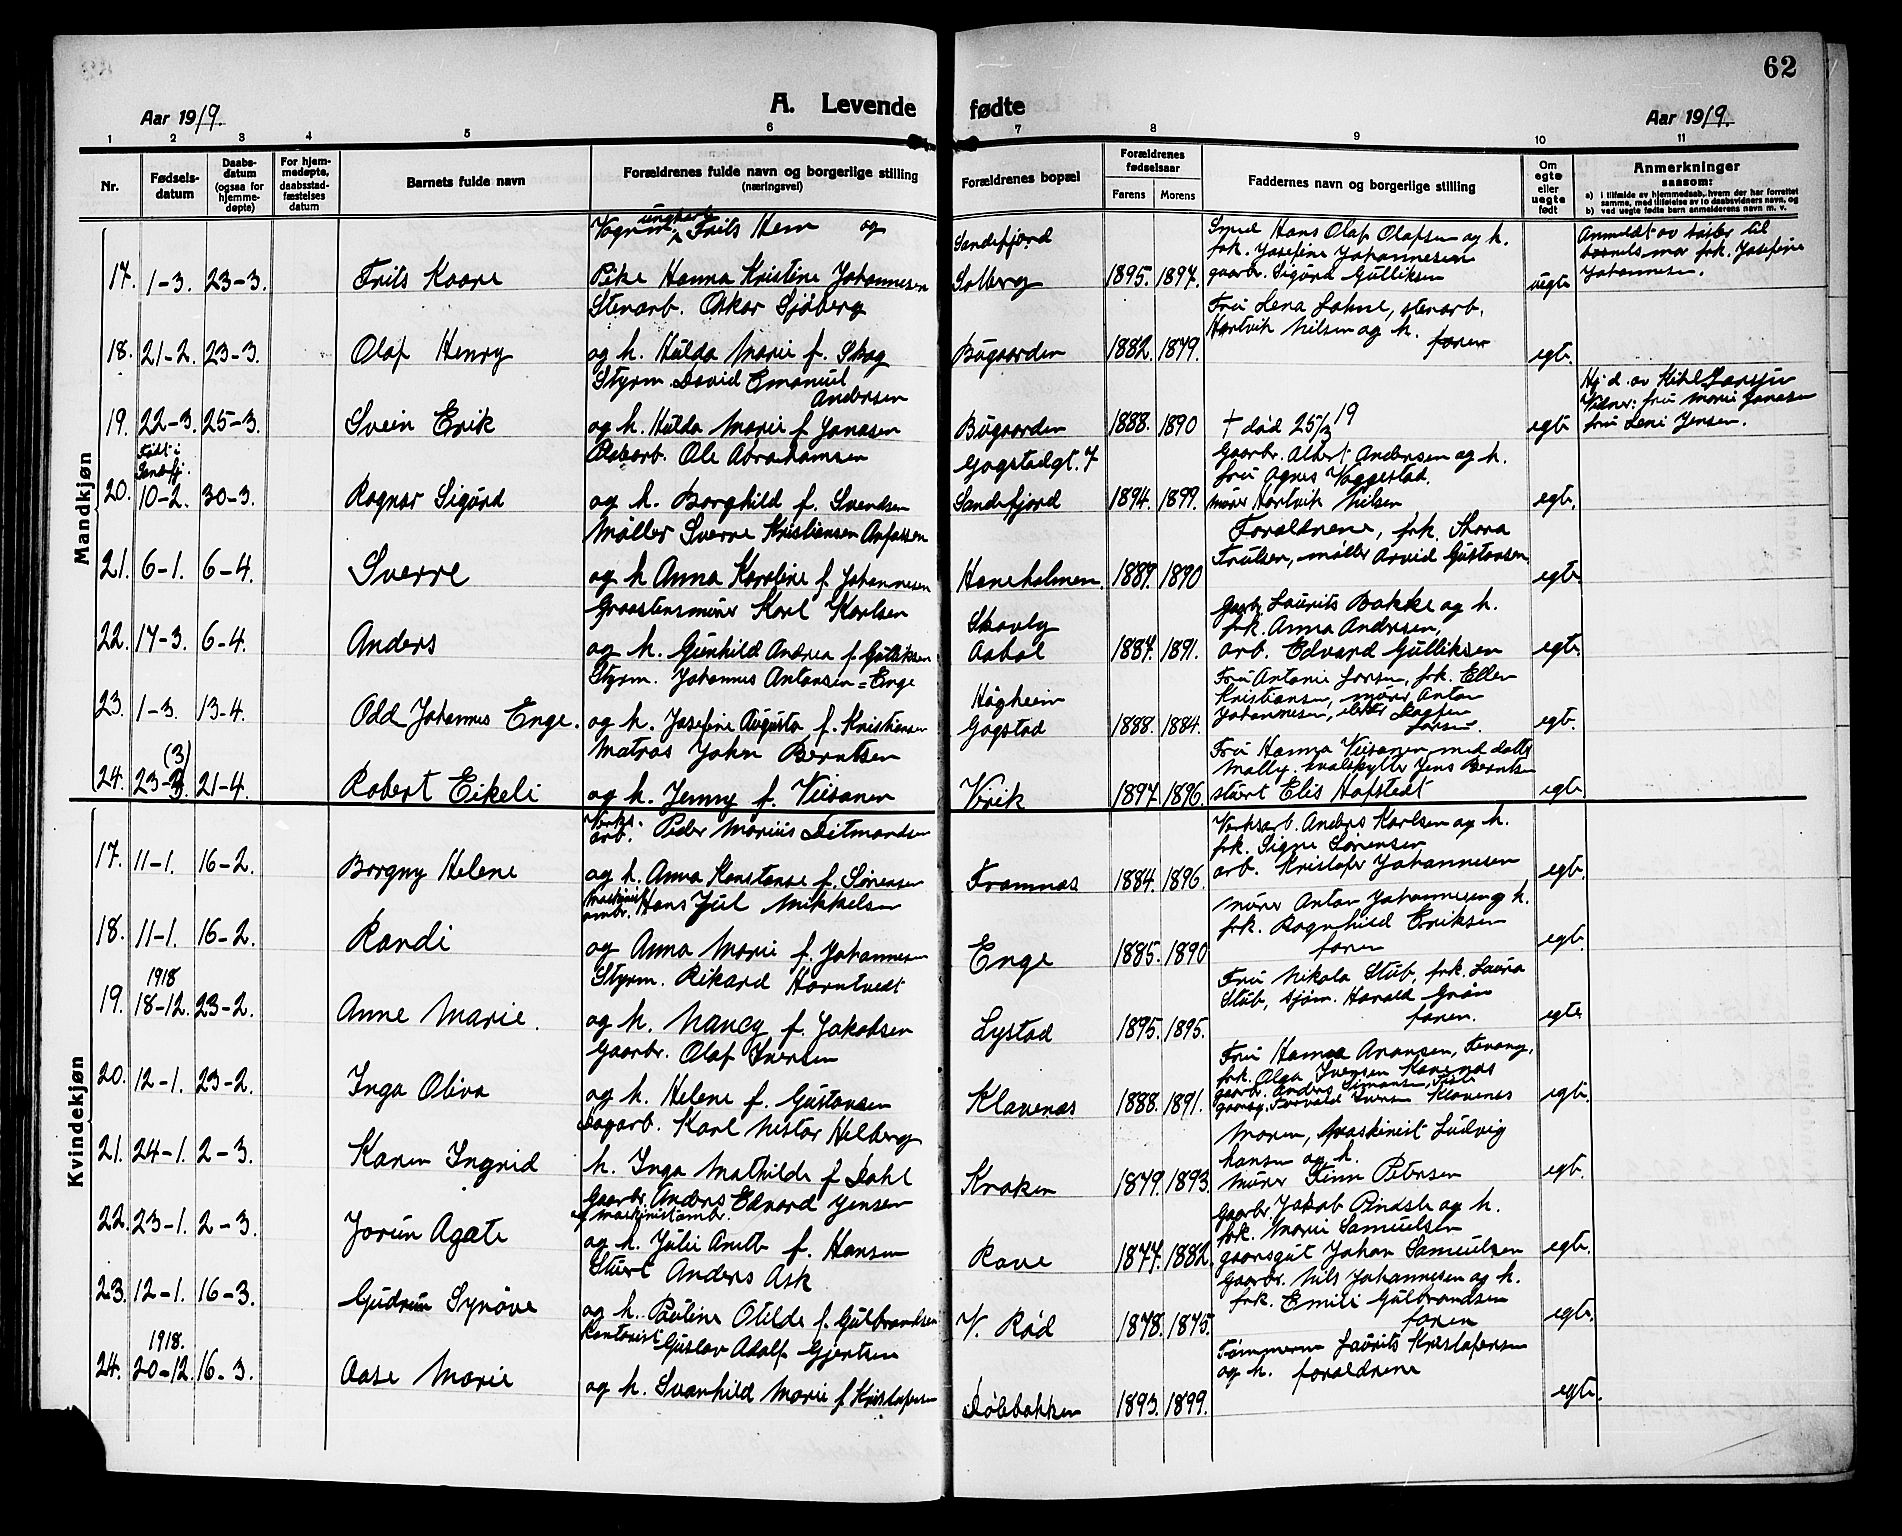 62
Aar 1919.
A. Levende fødte
Aar 1919.
1 2 3 4 5 6 7 8 9 10 11
Nr.
Fødsels-
datum
Daabs-
datum
(ogsaa for
hjemme-
døpte)
For hjem-
medøpte,
daabsstad-
fæstelses
datum
Barnets fulde navn
Forældrenes fulde navn og borgerlige stilling
(næringsvei)
Forældrenes bopæl
Forældrenes
fødselsaar
Farens Morens
Faddernes navn og borgerlige stilling
Om
egte
eller
uegte
født
Anmerkninger
saasom:
a) i tilfælde av hjemmedaab, hvem der har forrettet
samme, med tilføielse av to daabsvidners navn, og
b) ved uegte fødte barn anmelderens navn m. v.
Mandkjøn
ungkarl
Vognm. Frits Hem og
Sandefjord
Smed Hans Olaf Olafsen og h.
frk. Josefine Johannesen
Anmeldt av søster til
barnets mor frk. Josefine
Johannesen.
17. 1-3. 23-3. Frits Kaare Pike Hanna Kristine Johannesen Solberg 1895. 1897. gaarbr. Sigurd Gulliksen uegte
Stenarb. Oskar Sjøberg
Fru Lena Lahne, stenarb.
Hartvik Nilsen og h.
faren
18. 21-2. 23-3. Olaf Henry og h. Hulda Marie f. Skog Bugaarden 1882. 1879. egte.
Styrm. David Emanuel
Andersen
Hj. d. av Kihl Larsen
Vidner: fru Marie Jonasen
fru Leni Jensen.
19. 22-3. 25-3. Svein Erik og h. Hulda Marie f. Jonasen Bugaarden 1888. 1890 † død 25/3 19 egte
Født i
Sandefj.
Ole Abrahamsen
Gogstadgt. 7
Gaarbr. Albert Andersen og h.
fru Agnes Vaggestad.
20. 10-2. 30-3. Ragnar Sigurd og h. Borghild f. Svendsen Sandefjord 1894. 1899. murer Hartvik Nilsen egte.
Møller Sverre Kristiansen
Forældrene, frk. Thora
Trulsen, møller Arvid Gustavsen
21. 6-1. 6-4. Sverre og h Anna Karoline f. Johannesen Haneholmen. 1889. 1890 egte
Graastensmurer Karl Karlsen
Skovly
Gaarbr. Laurits Bakke og h.
frk. Anna Andersen,
22. 17-3. 6-4. Anders og h. Gunhild Andrea f. Gulliksen Aabol 1887. 1891. arb. Edvard Gulliksen egte.
Styrm. Johannes Antonsen=Enge
Høgheim
Fru Antonie Larsen, frk. Ellen
Kristiansen, murer Anton
Johannesen, Dagfin
Larsen.
23. 1-3. 13-4. Odd Johannes Enge. og h. Josefine Augusta f. Kristiansen Gogstad 1888. 1884. egte.
Matros John Berntsen
Fru Hanna Virsanen med datter
Molly. hvalskytter Jens Berntsen
24. 23-3 (3) 21-4. Robert Eikeli og h. Jenny f. Virsanen Virik 1897 1896. stuert Elis Hofstedt egte
Kvindekjøn
Verks.
arb. Peder Marius Ditmandsen
Verksarb. Anders Karlsen og h.
frk. Signe Sørensen
17. 11-1. 16-2. Borgny Helene og h. Anna Konstanse f. Sørensen Framnæs 1884. 1896. arb. Kristofer Johannesen egte.
Maskinist
Hans Juul Mikkelsen
murer Anton Johannesen og h.
frk. Ragnhild Eriksen
faren
18. 11-1. 16-2. Randi og Anna Marie f. Johannesen Enge 1885. 1890 egte.
Styrm. Rikard Horntvedt
1918
Fru Nikola Stub, frk. Laura
Stub, sjøm. Harald Grøn
faren.
19. 18-12. 23-2. Anne Marie. og h. Nancy f. Jakobsen Lystad 1895. 1895. egte
Gaarbr. Olaf Iversen
Fru Hanna Aronsen, Tevang,
frk. Olga Iversen Klavenæs
gaarbr. Anders Simonsen,
gaardsg. Torvald Iversen Klavenes
20. 12-1. 23-2. Inga Oliva og h. Helene f. Gustavsen Klavenæs 1888. 1891. egte.
Dagarb. Karl Nestor Hilberg
Moren, maskinist Ludvig
Hansen og h.
21. 24-1. 2-3. Karen Ingrid h. Inga Mathilde f Dahl Kraken 1879. 1893. murer Finn Petersen egte.
Gaarbr. Anders Edvard Jensen
Gaarbr. Jakob Pindsle og h.
frk. Marie Samuelsen
22. 23-1. 2-3. Jorun Agate og h. Julie Anette f. Hansen Rave 1877. 1882. gaardsgut Johan Samuelsen egte.
Stuert Anders Ask
Gaarbr. Nils Johannesen og h.
frk. Emili Gulbrandsen
faren
23. 12-1. 16-3. Gudrun Synøve og h. Pauline Otilde f. Gulbrandsen V. Rød 1878. 1875. egte.
Kontorist Gustav Adolf Gjertsen
1918.
Tømmerm Laurits Kristofersen
og h. forældrene
24. 20-12. 16-3. Aase Marie og h. Svanhild Marie f Kristofersen Dølebakken 1893. 1899. egte.